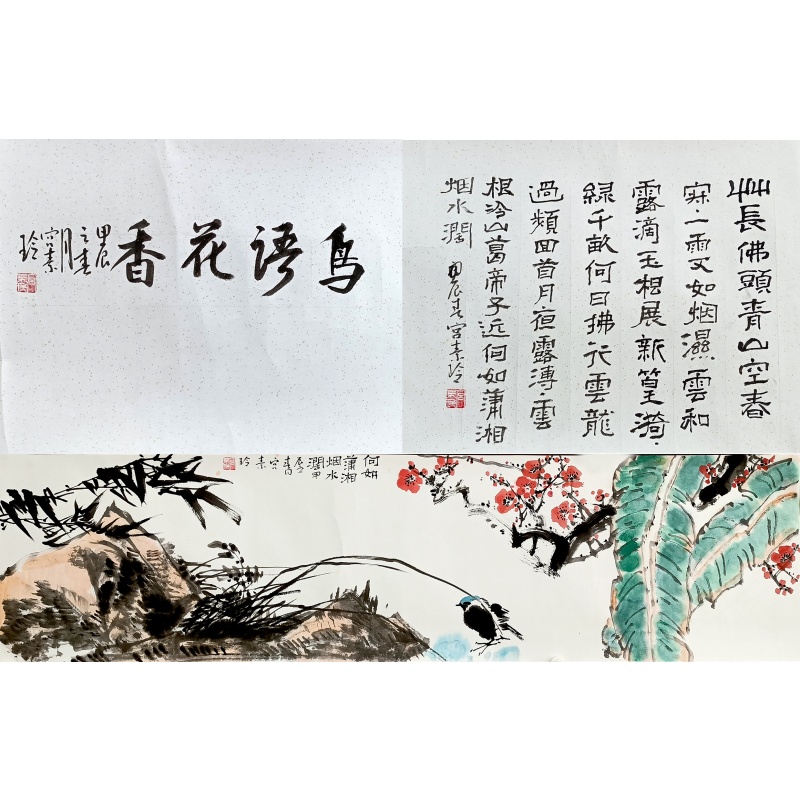 鸟语花香
甲辰
之春
月
宫素
玲
艸長佛頭青山空春
寂二雪又如烟濕雲和
露滴玉根展新篁漪
綠千畝何日拂衣雲龍
過頻回首月夜露漙雲
根冷山葛帝子近何如瀟湘
烟水濶 甲辰春宫素玲
何如
瀟湘
烟水
濶甲
辰春
宫
素
玲